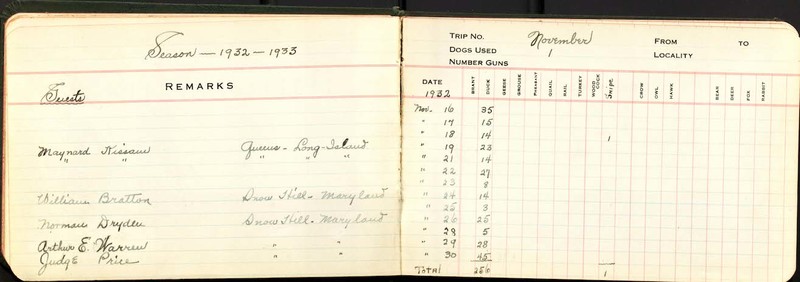 Season — 1932 — 1933
REMARKS
Guests
Maynard Nissaw Queens - Long-Island
" " " " "
William Bratton Snow Hill - Maryland
Norman Dryden Snow Hill - Maryland
Arthur E. Warren " "
Judge Price " "
TRIP NO. November FROM TO
DOGS USED 1 LOCALITY
NUMBER GUNS
DATE BRANT DUCK GEESE GROUSE PHEASANT QUAIL RAIL TURKEY WOODCOCK Snipe CROW OWL HAWK BEAR DEER FOX RABBIT
1932
Nov. 16 35
" 17 15
" 18 14 1
" 19 23
" 21 14
" 22 27
" 23 8
" 24 14
" 25 3
" 26 25
" 28 5
" 29 28
" 30 45
Total 256 1